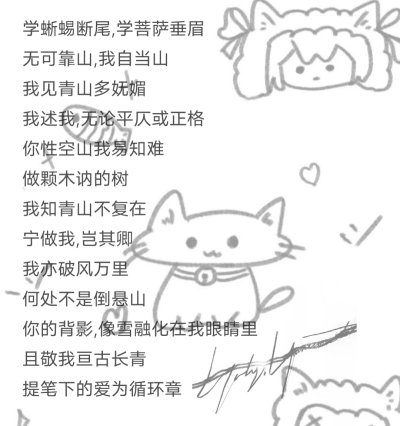 学蜥蜴断尾,学菩萨垂眉
无可靠山,我自当山
我见青山多妩媚
我述我,无论平仄或正格
你性空山我易知难
做颗木讷的树
我知青山不复在
宁做我,岂其卿
我亦破风万里
何处不是倒悬山
你的背影,像雪融化在我眼睛里
且敬我亘古长青
提笔下的爱为循环章